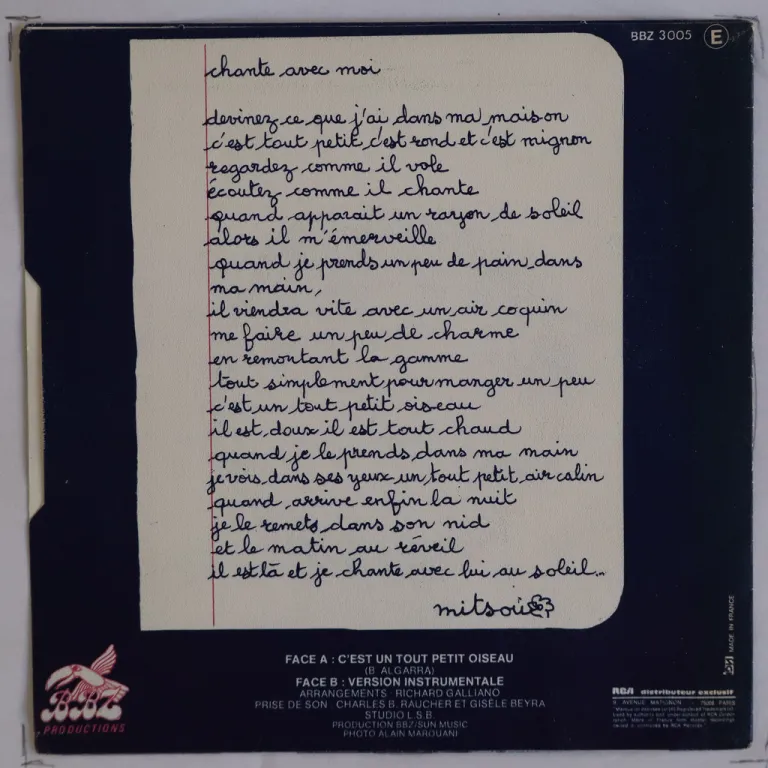 BBZ 3005 E
chante avec moi
devinez ce que j'ai dans ma maison
c'est tout petit, c'est rond et c'est mignon
regardez comme il vole
écoutez comme il chante
quand apparait un rayon de soleil
alors il m'émerveille
quand je prends un peu de pain dans
ma main,
il viendra vite avec un air coquin
me faire un peu de charme
en remontant la gamme
tout simplement pour manger un peu
c'est un tout petit oiseau
il est doux il est tout chaud
quand je le prends dans ma main
je vois dans ses yeux un tout petit air calin
quand arrive enfin la nuit
je le remets dans son nid
et le matin au réveil
il est là et je chante avec lui au soleil...
mitsou
FACE A : C'EST UN TOUT PETIT OISEAU
(B. ALGARRA)
FACE B : VERSION INSTRUMENTALE
ARRANGEMENTS : RICHARD GALLIANO
PRISE DE SON : CHARLES B. RAUCHER ET GISÈLE BEYRA
STUDIO L.S.B.
PRODUCTION BBZ/SUN MUSIC
PHOTO ALAIN MAROUANI
BBZ
PRODUCTIONS
MADE IN FRANCE
RCA distributeur exclusif
9, AVENUE MATIGNON - 75008 PARIS